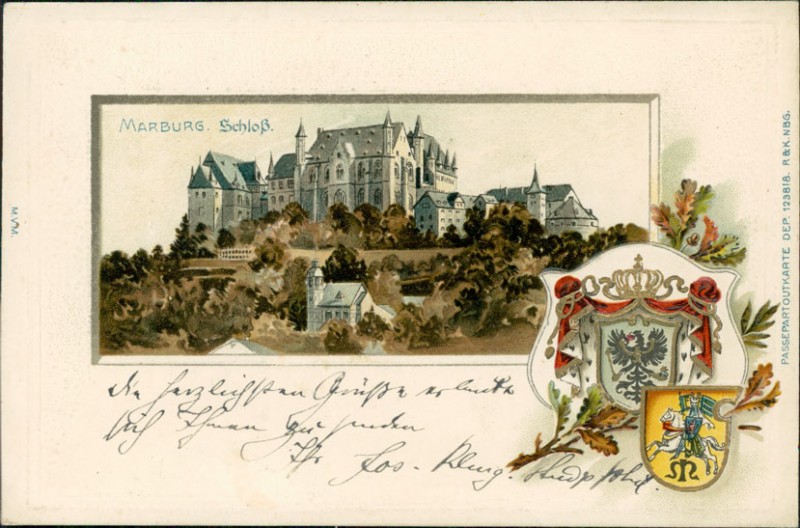 MARBURG. Schloß.
M.V.M.
PASSEPARTOUTKARTE DEP. 123818. R & K. NBG.
M
die herzlichsten Grüße erlaubt
sich Ihnen zu senden
Ihr Jos.